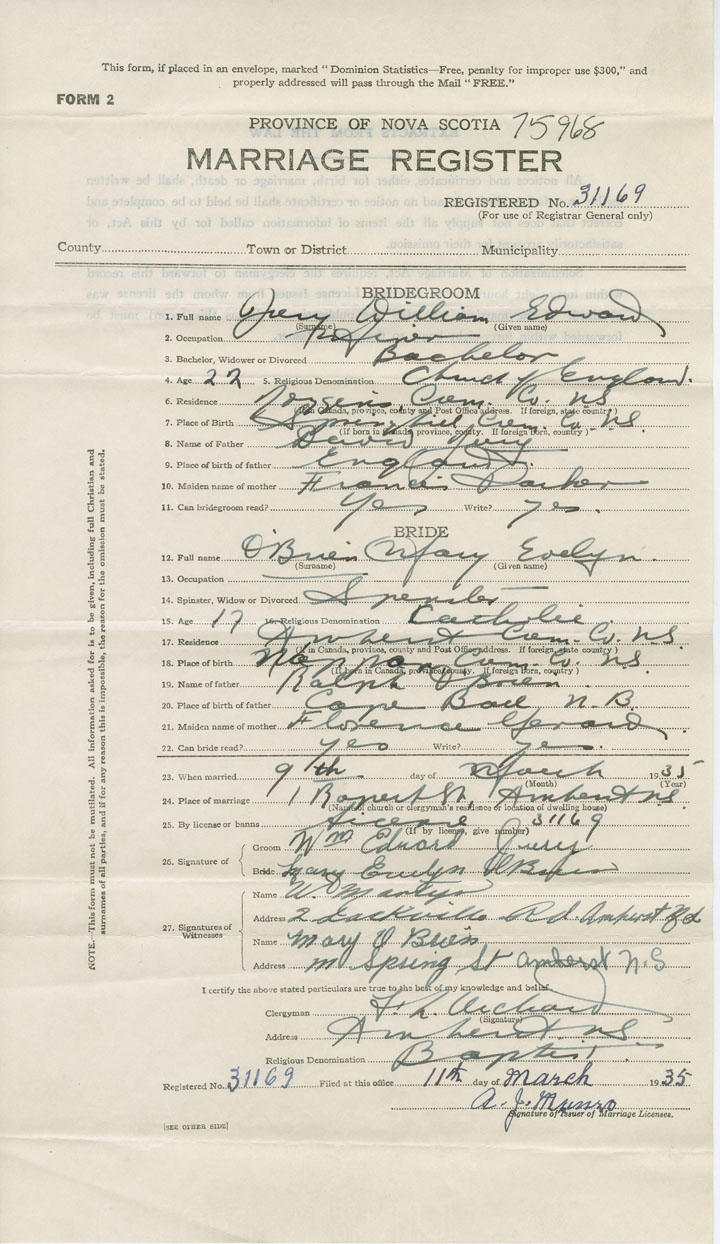 This form, if placed in an envelope, marked "Dominion Statistics—Free, penalty for improper use $300," and
properly addressed will pass through the Mail "FREE."
FORM 2
PROVINCE OF NOVA SCOTIA 75968
MARRIAGE REGISTER
REGISTERED No. 31169
(For use of Registrar General only)
County Town or District Municipality
BRIDEGROOM
1. Full name William Edward
(Surname) (Given name)
2. Occupation
3. Bachelor, Widower or Divorced Bachelor
4. Age 22 5. Religious Denomination Church of England.
6. Residence Joggins, Cum. Co. NS
(If in Canada, province, county and Post Office address. If foreign, state country)
7. Place of Birth Springhill Cum. Co. NS.
(If born in Canada, province, county. If foreign born, country)
8. Name of Father David
9. Place of birth of father England.
10. Maiden name of mother Francis Parker
11. Can bridegroom read? Yes Write? Yes.
BRIDE
12. Full name O'Brien Mary Evelyn.
(Surname) (Given name)
13. Occupation
14. Spinster, Widow or Divorced Spinster
15. Age 17 16. Religious Denomination Catholic.
17. Residence Amherst Cum. Co. NS.
(If in Canada, province, county and Post Office address. If foreign, state country)
18. Place of birth Nappan Cum. Co. NS.
(If born in Canada, province, county. If foreign born, country)
19. Name of father Ralph O'Brien.
20. Place of birth of father Cape Bald N.B.
21. Maiden name of mother Florence
22. Can bride read? yes Write? yes.
23. When married 9th day of March 1935
(Month) (Year)
24. Place of marriage 1 Rupert St., Amherst NS.
(Name of church or clergyman's residence or location of dwelling house)
25. By license or banns license 31169
(If by license, give number)
26. Signature of
Groom Wm Edward
Bride Mary Evelyn O'Brien
27. Signatures of Witnesses
Name W. Martyn
Address 2 Sackville Rd. Amherst
Name Mary O Brien
Address Spring St Amherst N.S
I certify the above stated particulars are true to the best of my knowledge and belief.
Clergyman
(Signature)
Address Amherst NS
Religious Denomination Baptist.
Registered No. 31169 Filed at this office 11th day of March 1935
A. J. Munro
Signature of Issuer of Marriage Licenses.
[SEE OTHER SIDE]
NOTE.—This form must not be mutilated. All information asked for is to be given, including full Christian and
surnames of all parties, and if for any reason this is impossible, the reason for the omission must be stated.